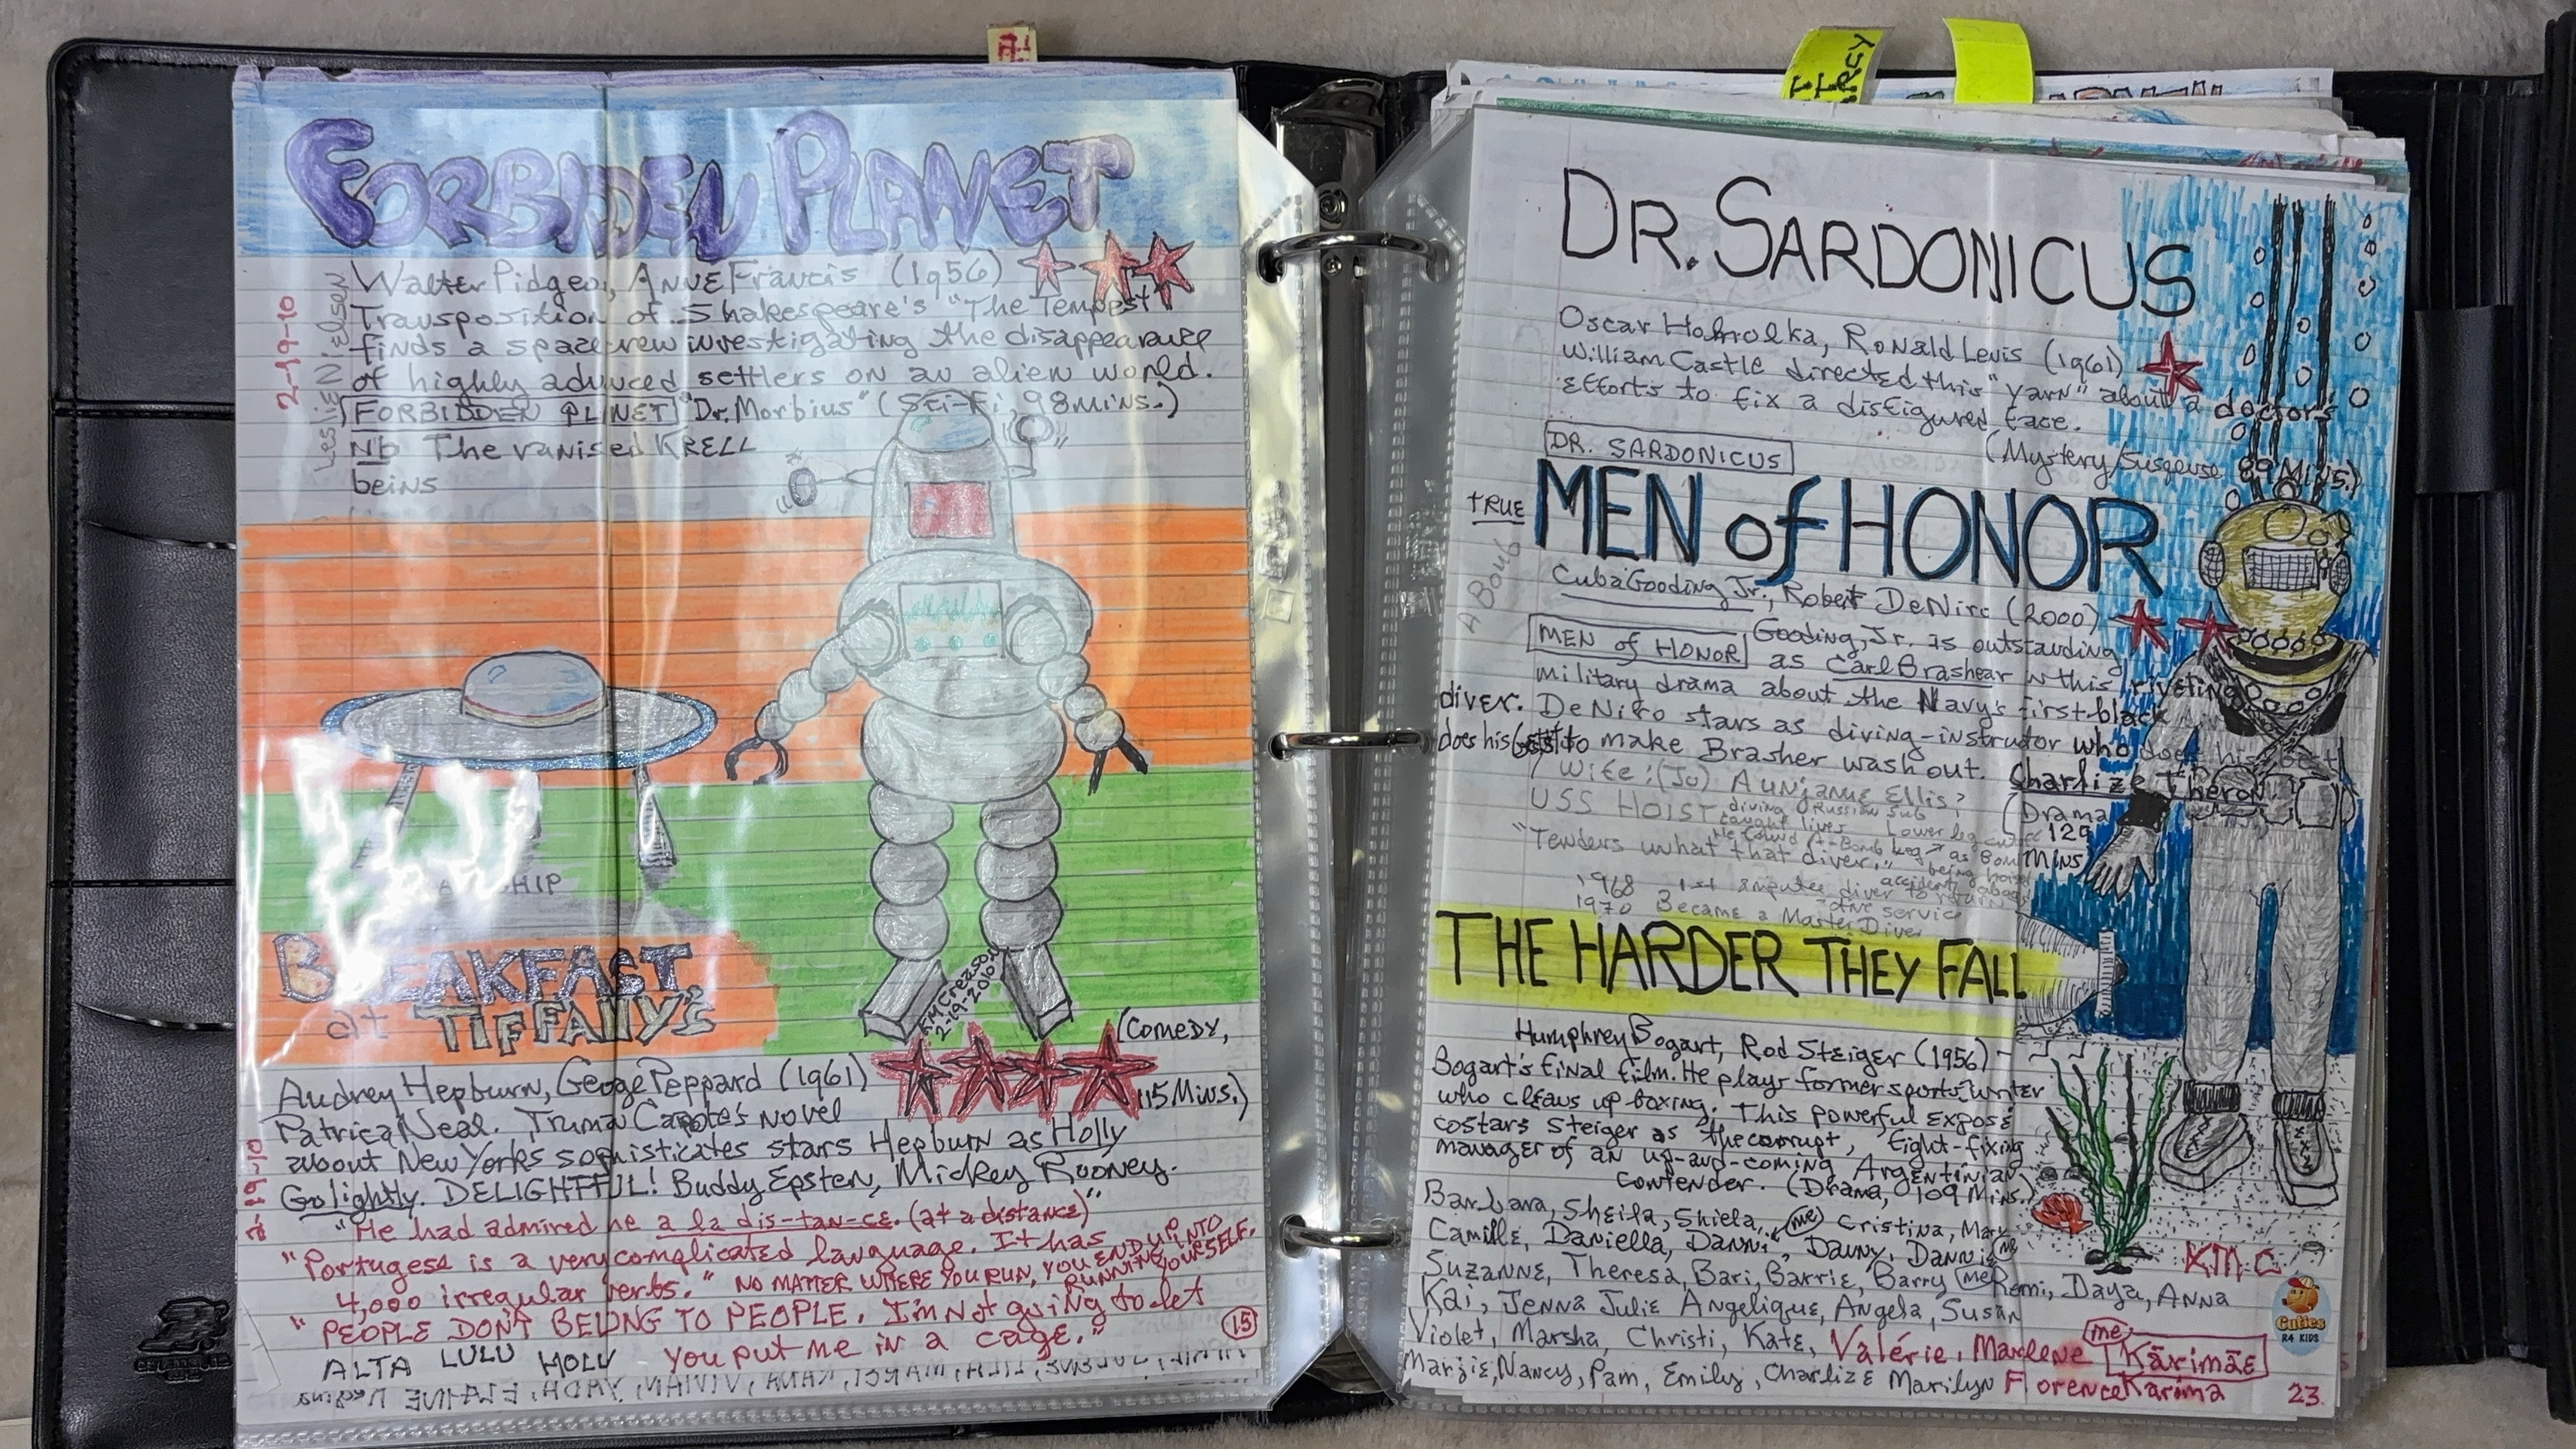 FORBIDEN PLANET
Walter Pidgeon, ANNE Francis (1956)
Leslie Nielsen
2-19-10
Transposition of Shakespeare's "The Tempest"
finds a space crew investigating the disappearance
of highly advnced settlers on an alien world.
FORBIDDEN PLANET "Dr. Morbius" (Sci-Fi, 98 mins.)
Nb The vanised KRELL
beins
SHIP
K.M.Creason
2-19-2010
BREAKFAST
at TIFFANY'S
(Comedy,
115 Mins.)
Audrey Hepburn, Geoge Peppard (1961)
Patrica Neal. Truma Capote's novel
about New Yorks sophisticates stars Hepburn as Holly
Golightly. DELIGHTFUL! Buddy Epsten, Mickey Rooney.
2-19-10
"He had admired me a la dis-tan-ce. (at a distance)"
"Portugess is a very complicated language. It has
4,000 irregular verbs." NO MATTER WHERE YOU RUN, YOU END UP INTO
RUNNING YOURSELF.
"PEOPLE DON'T BELONG TO PEOPLE. I'm Not going to let
you put me in a cage."
15
ALTA LULU HOLLY
DR. SARDONICUS
Oscar Homolka, Ronald Lewis (1961)
William Castle directed this "yarn" about a doctor's
efforts to fix a disfigured face.
DR. SARDONICUS
(Mystery/Suspense, 89 Mins.)
TRUE
MEN of HONOR
A Bomb
Cuba Gooding Jr., Robert DeNiro (2000)
MEN of HONOR Gooding, Jr. is outstanding
as Carl Brashear in this riveting
military drama about the Navy's first black
diver. DeNiro stars as diving-instrudor who does his best
does his best to make Brasher wash out. Charlize Theron
Wife: (Jo) Aunjanue Ellis?
(Drama
129
Mins
USS HOIST
diving Russian sub
caught lives
Lower leg
"Tenders what that diver."
1968 1st amputee diver to return
active service
1970 Became a Master Diver
THE HARDER THEY FALL
Humphrey Bogart, Rod Steiger (1956)
Bogart's final film. He plays former sports writer
who cleans up boxing. This powerful exposé
costars Steiger as the corrupt, fight-fixing
manager of an up-and-coming Argentinian
contender. (Drama, 109 Mins.)
Barbara, Sheila, Shiela, me Cristina, Mary
Camille, Daniella, Danni, Danny, Dannie me
Suzanne, Theresa, Bari, Barrie, Barry me Romi, Daya, Anna
Kai, Jenna Julie Angelique, Angela, Susan
Violet, Marsha, Christi, Kate, Valérie, Marlene me Kärimäe
Margie, Nancy, Pam, Emily, Charlize Marilyn Florence Karima
KMC
Cuties
R4 KIDS
23